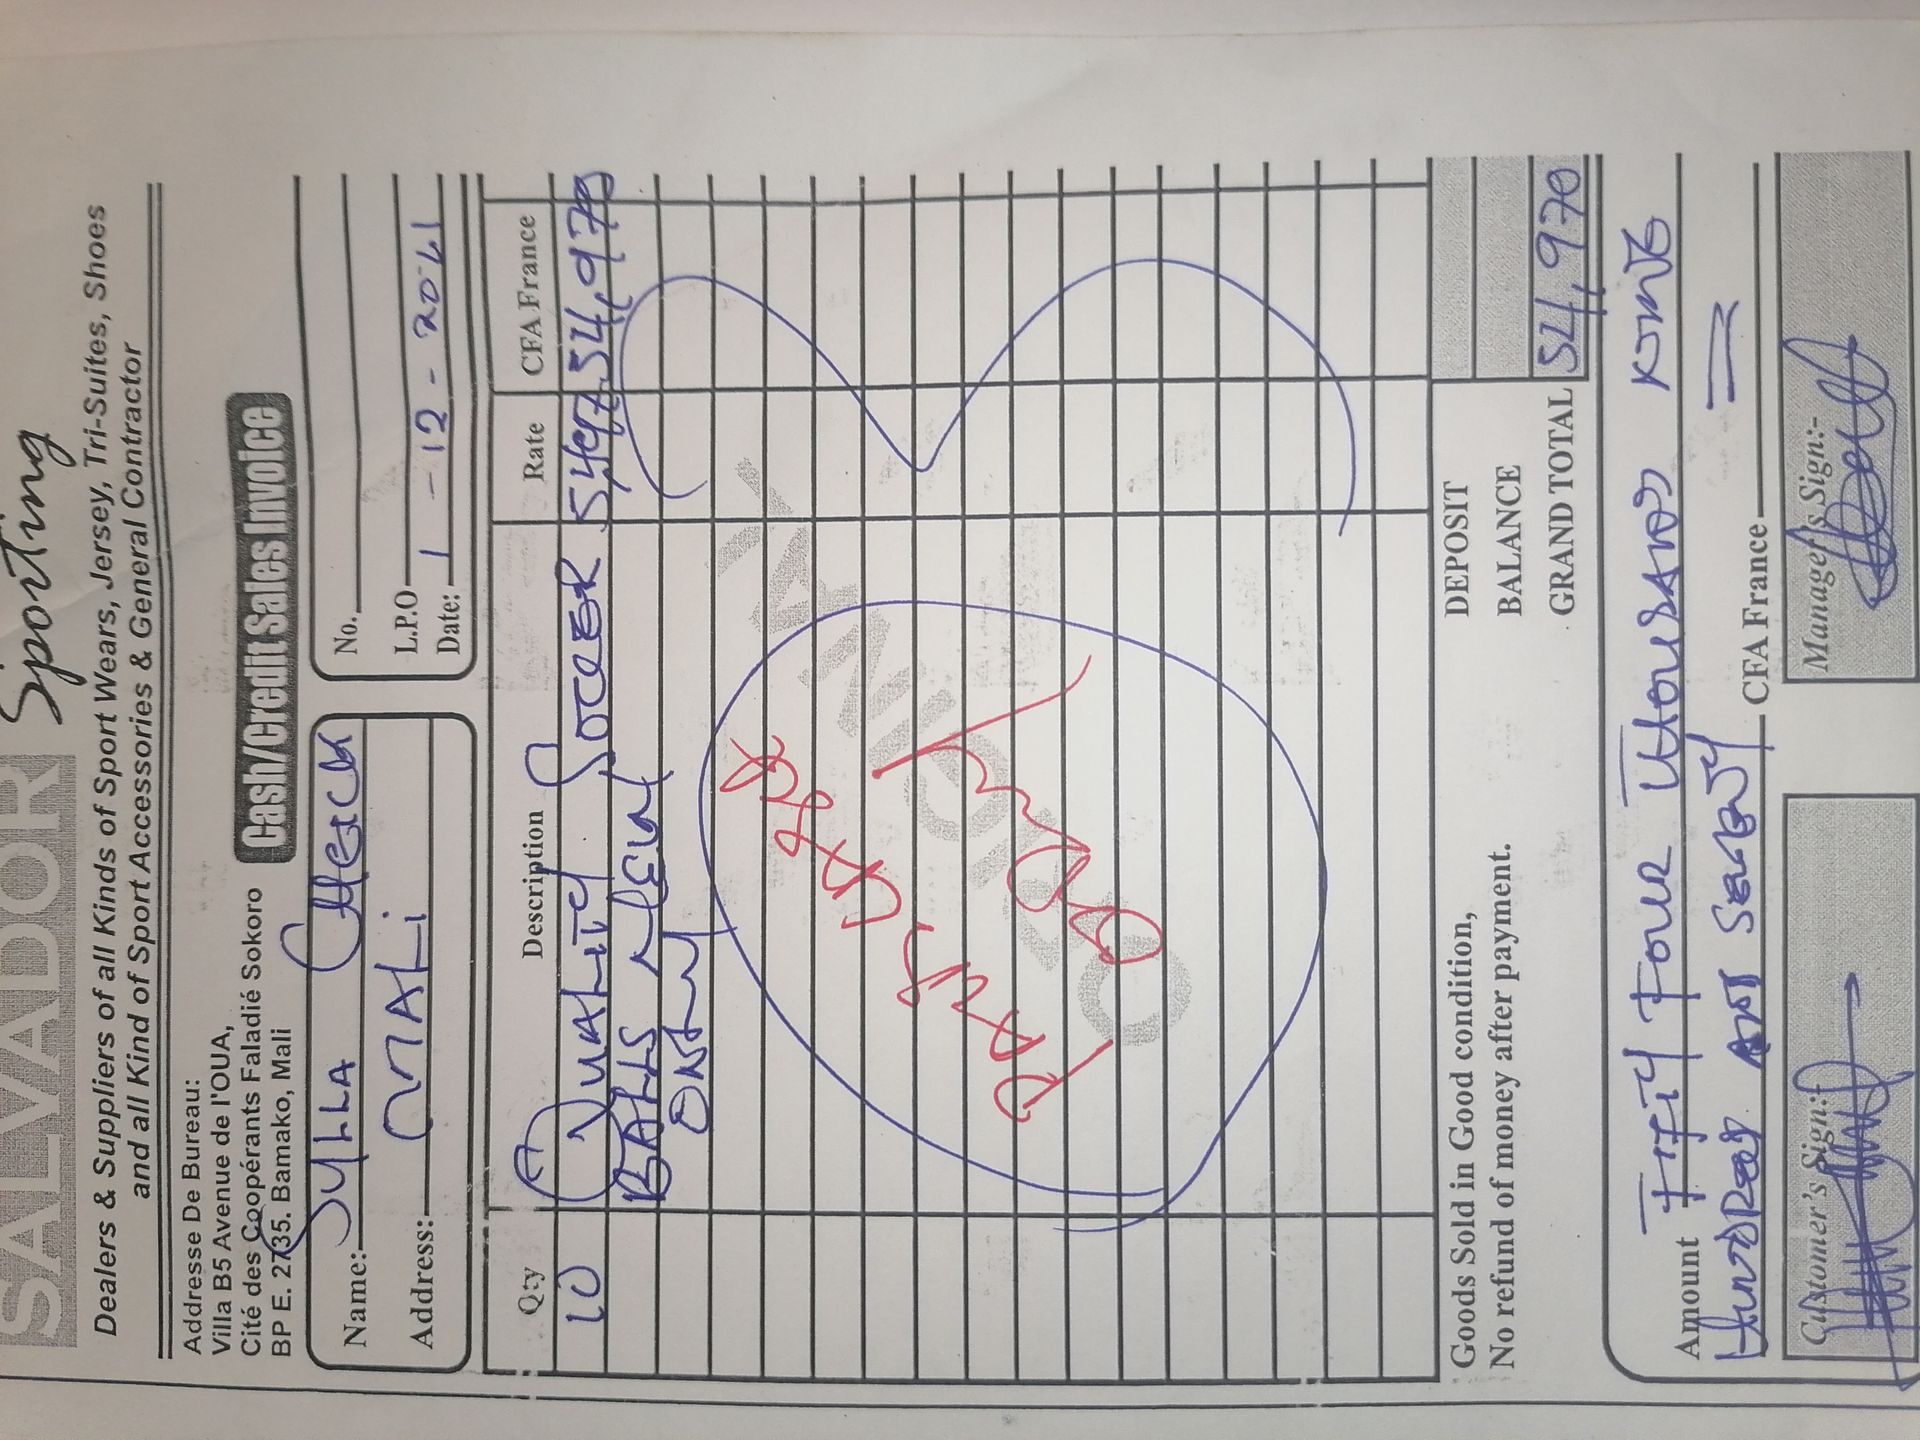 SALVADOR Sporting
Dealers & Suppliers of all Kinds of Sport Wears, Jersey, Tri-Suites, Shoes
and all Kind of Sport Accessories & General Contractor
Addresse De Bureau:
Villa B5 Avenue de l'OUA,
Cité des Coopérants Faladié Sokoro
BP E. 2735. Bamako, Mali
Cash/Credit Sales Invoice
Name: SYLLA CHEICK
Address: MALI
No.
L.P.O
Date: 1 - 12 - 2021
Qty Description Rate CFA France
10 QUALITY SOCCER 5,497 54,970
BALLS NEW
ONLY
OLYMPIC
Goods Sold in Good condition,
No refund of money after payment.
DEPOSIT
BALANCE
GRAND TOTAL 54,970
Amount FIFTY FOUR THOUSAND NINE
HUNDRED AND SEVENTY CFA France
Customer's Sign:-
Manager's Sign:-